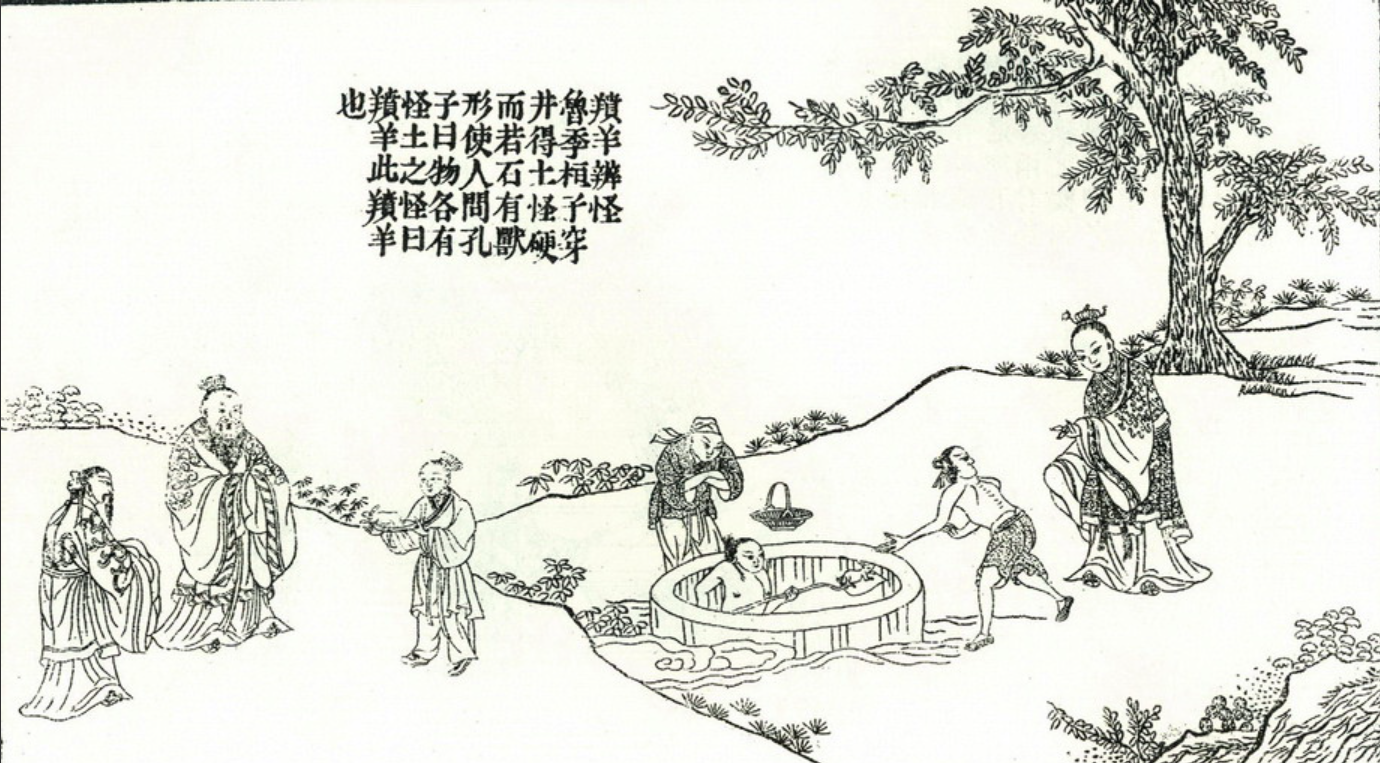 羵羊辨怪
魯季桓子穿
井得土怪硬
而若石有獸
形使人問孔
子曰物各有
怪土之怪曰
羵羊此羵羊
也